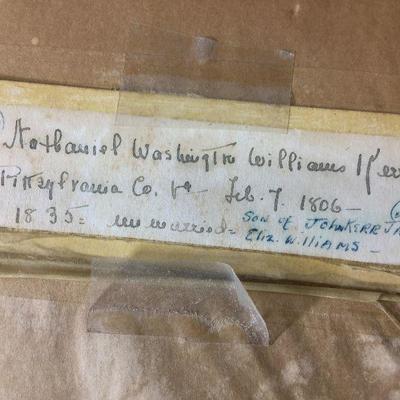 Nathaniel Washington Williams Kerr
Pittsylvania Co. Va - Feb. 7. 1806 -
1835 = unmarried = Son of John Kerr
Eliz. Williams -